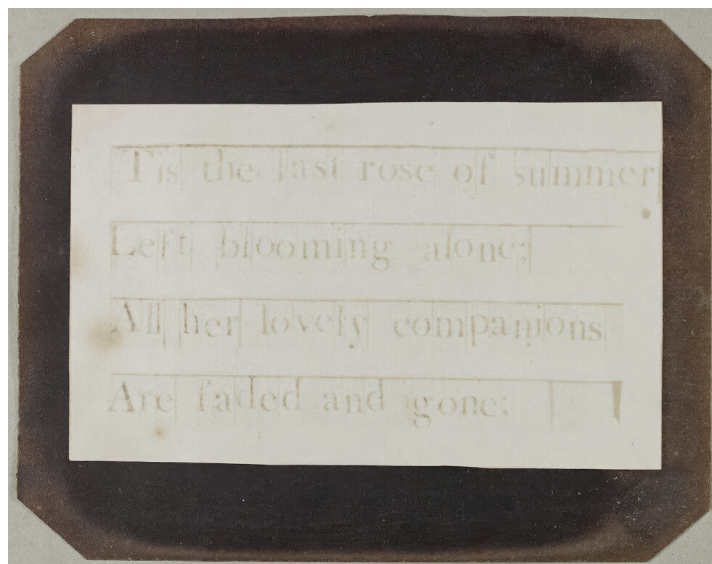 Tis the last rose of summer
Left blooming alone;
All her lovely companions
Are faded and gone;